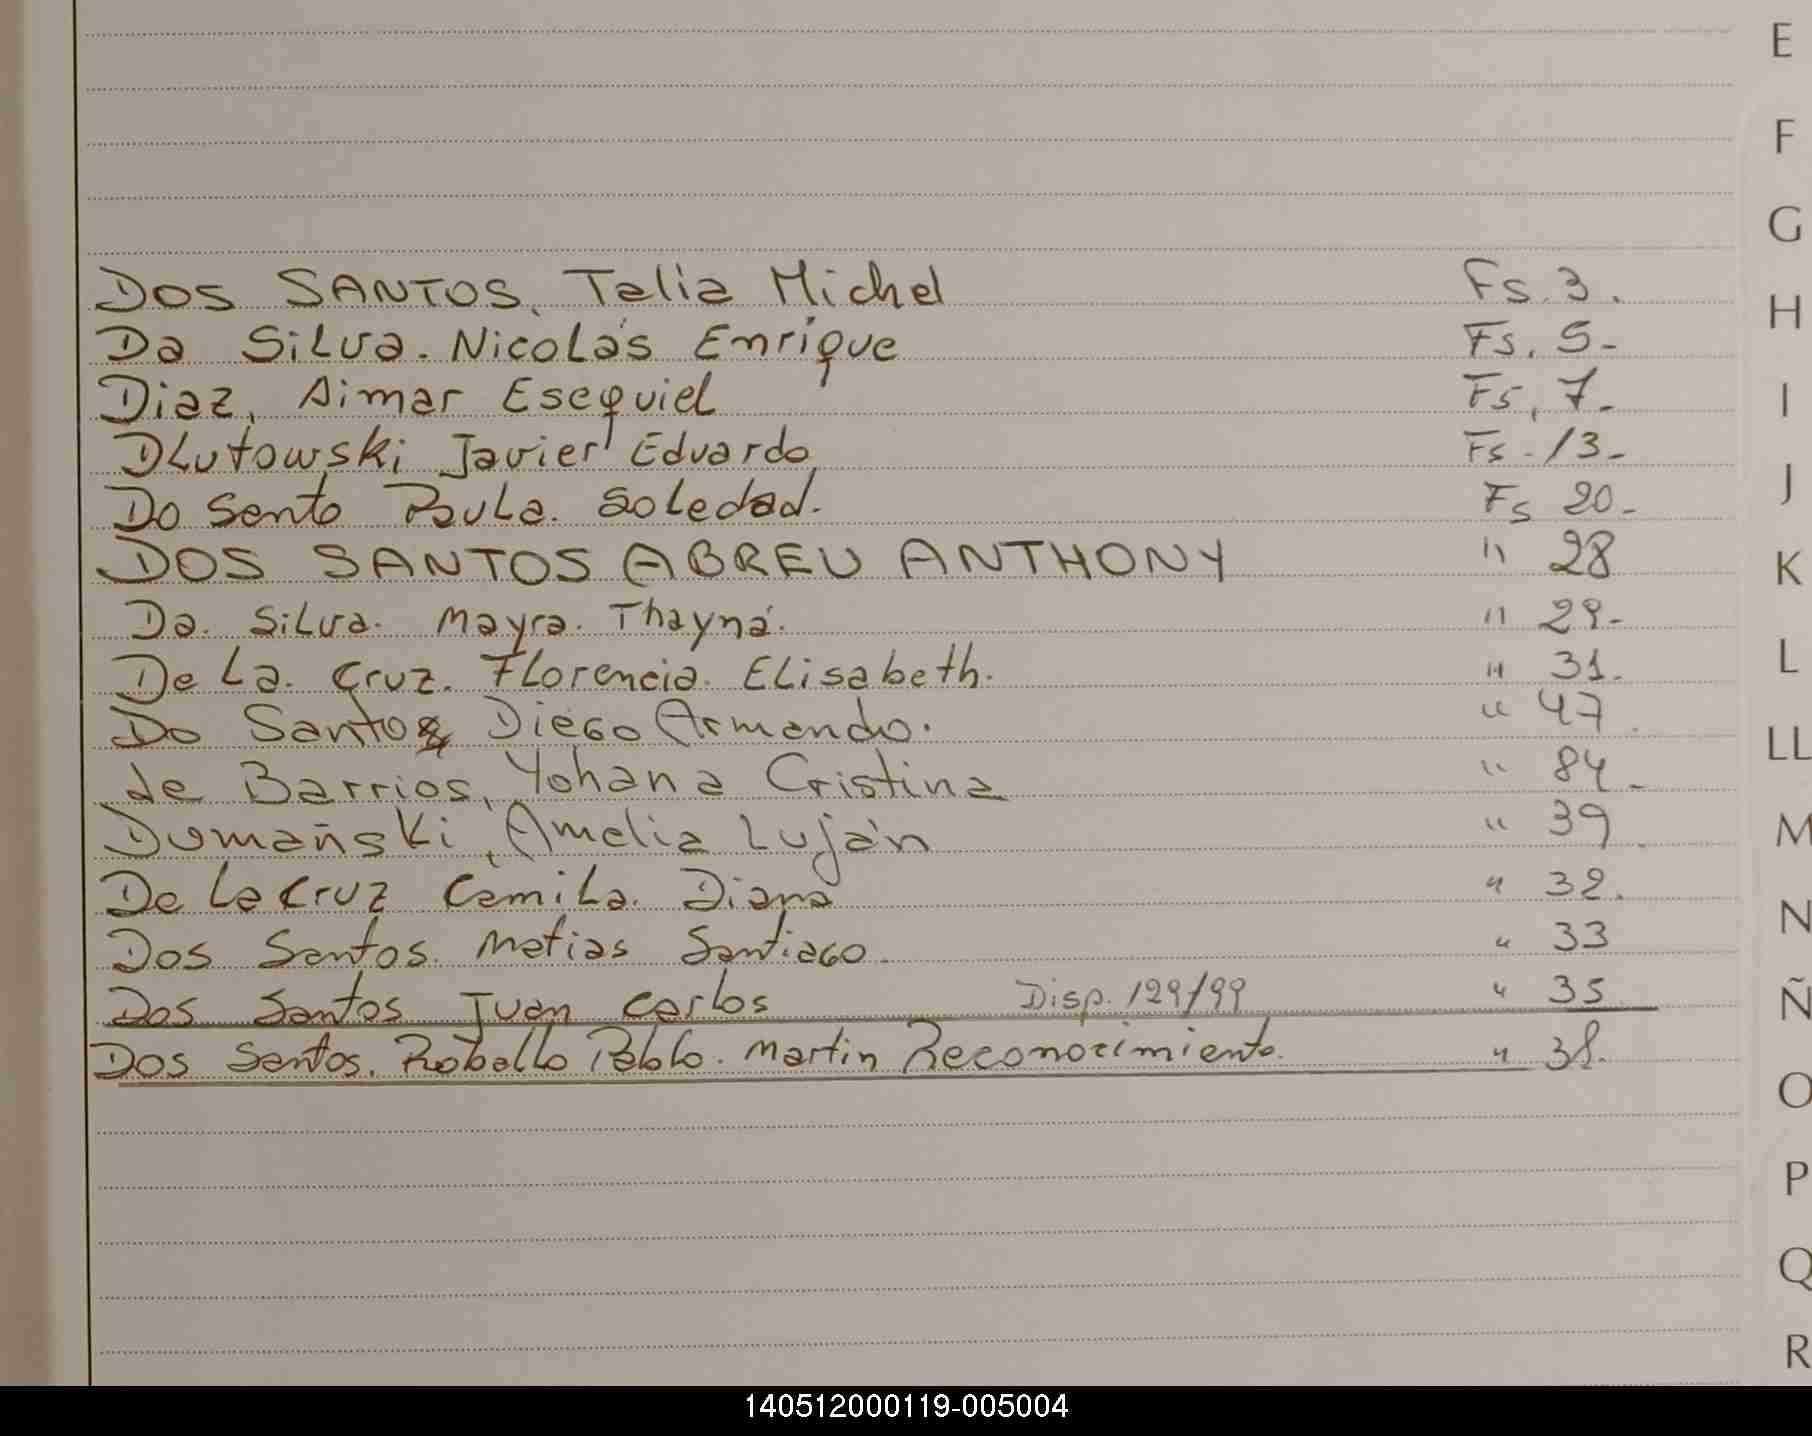 E
F
G
DOS SANTOS, Talia Michel Fs. 3.
H
Da Silva. Nicolás Enrique Fs. 5-
Diaz, Aimar Esequiel Fs. 7-
I
DLutowski Javier Eduardo Fs. 13-
Do Santo Paula. Soledad. Fs 20-
J
DOS SANTOS ABREU ANTHONY " 28
K
Da. Silva. Mayra. Thayná. " 29-
De La. Cruz. Florencia. Elisabeth. " 31.
L
Do Santos Diego Armando. " 47
LL
de Barrios, Yohana Cristina " 84-
Domañski, Amelia Luján " 39
M
De La Cruz Camila. Diana " 32.
N
Dos Santos. Matias Santiago. " 33
Dos Santos Juan Carlos Disp. 129/99 " 35
Ñ
Dos Santos. Robello Pablo. Martin Reconocimiento. " 38.
O
P
Q
R
140512000119-005004